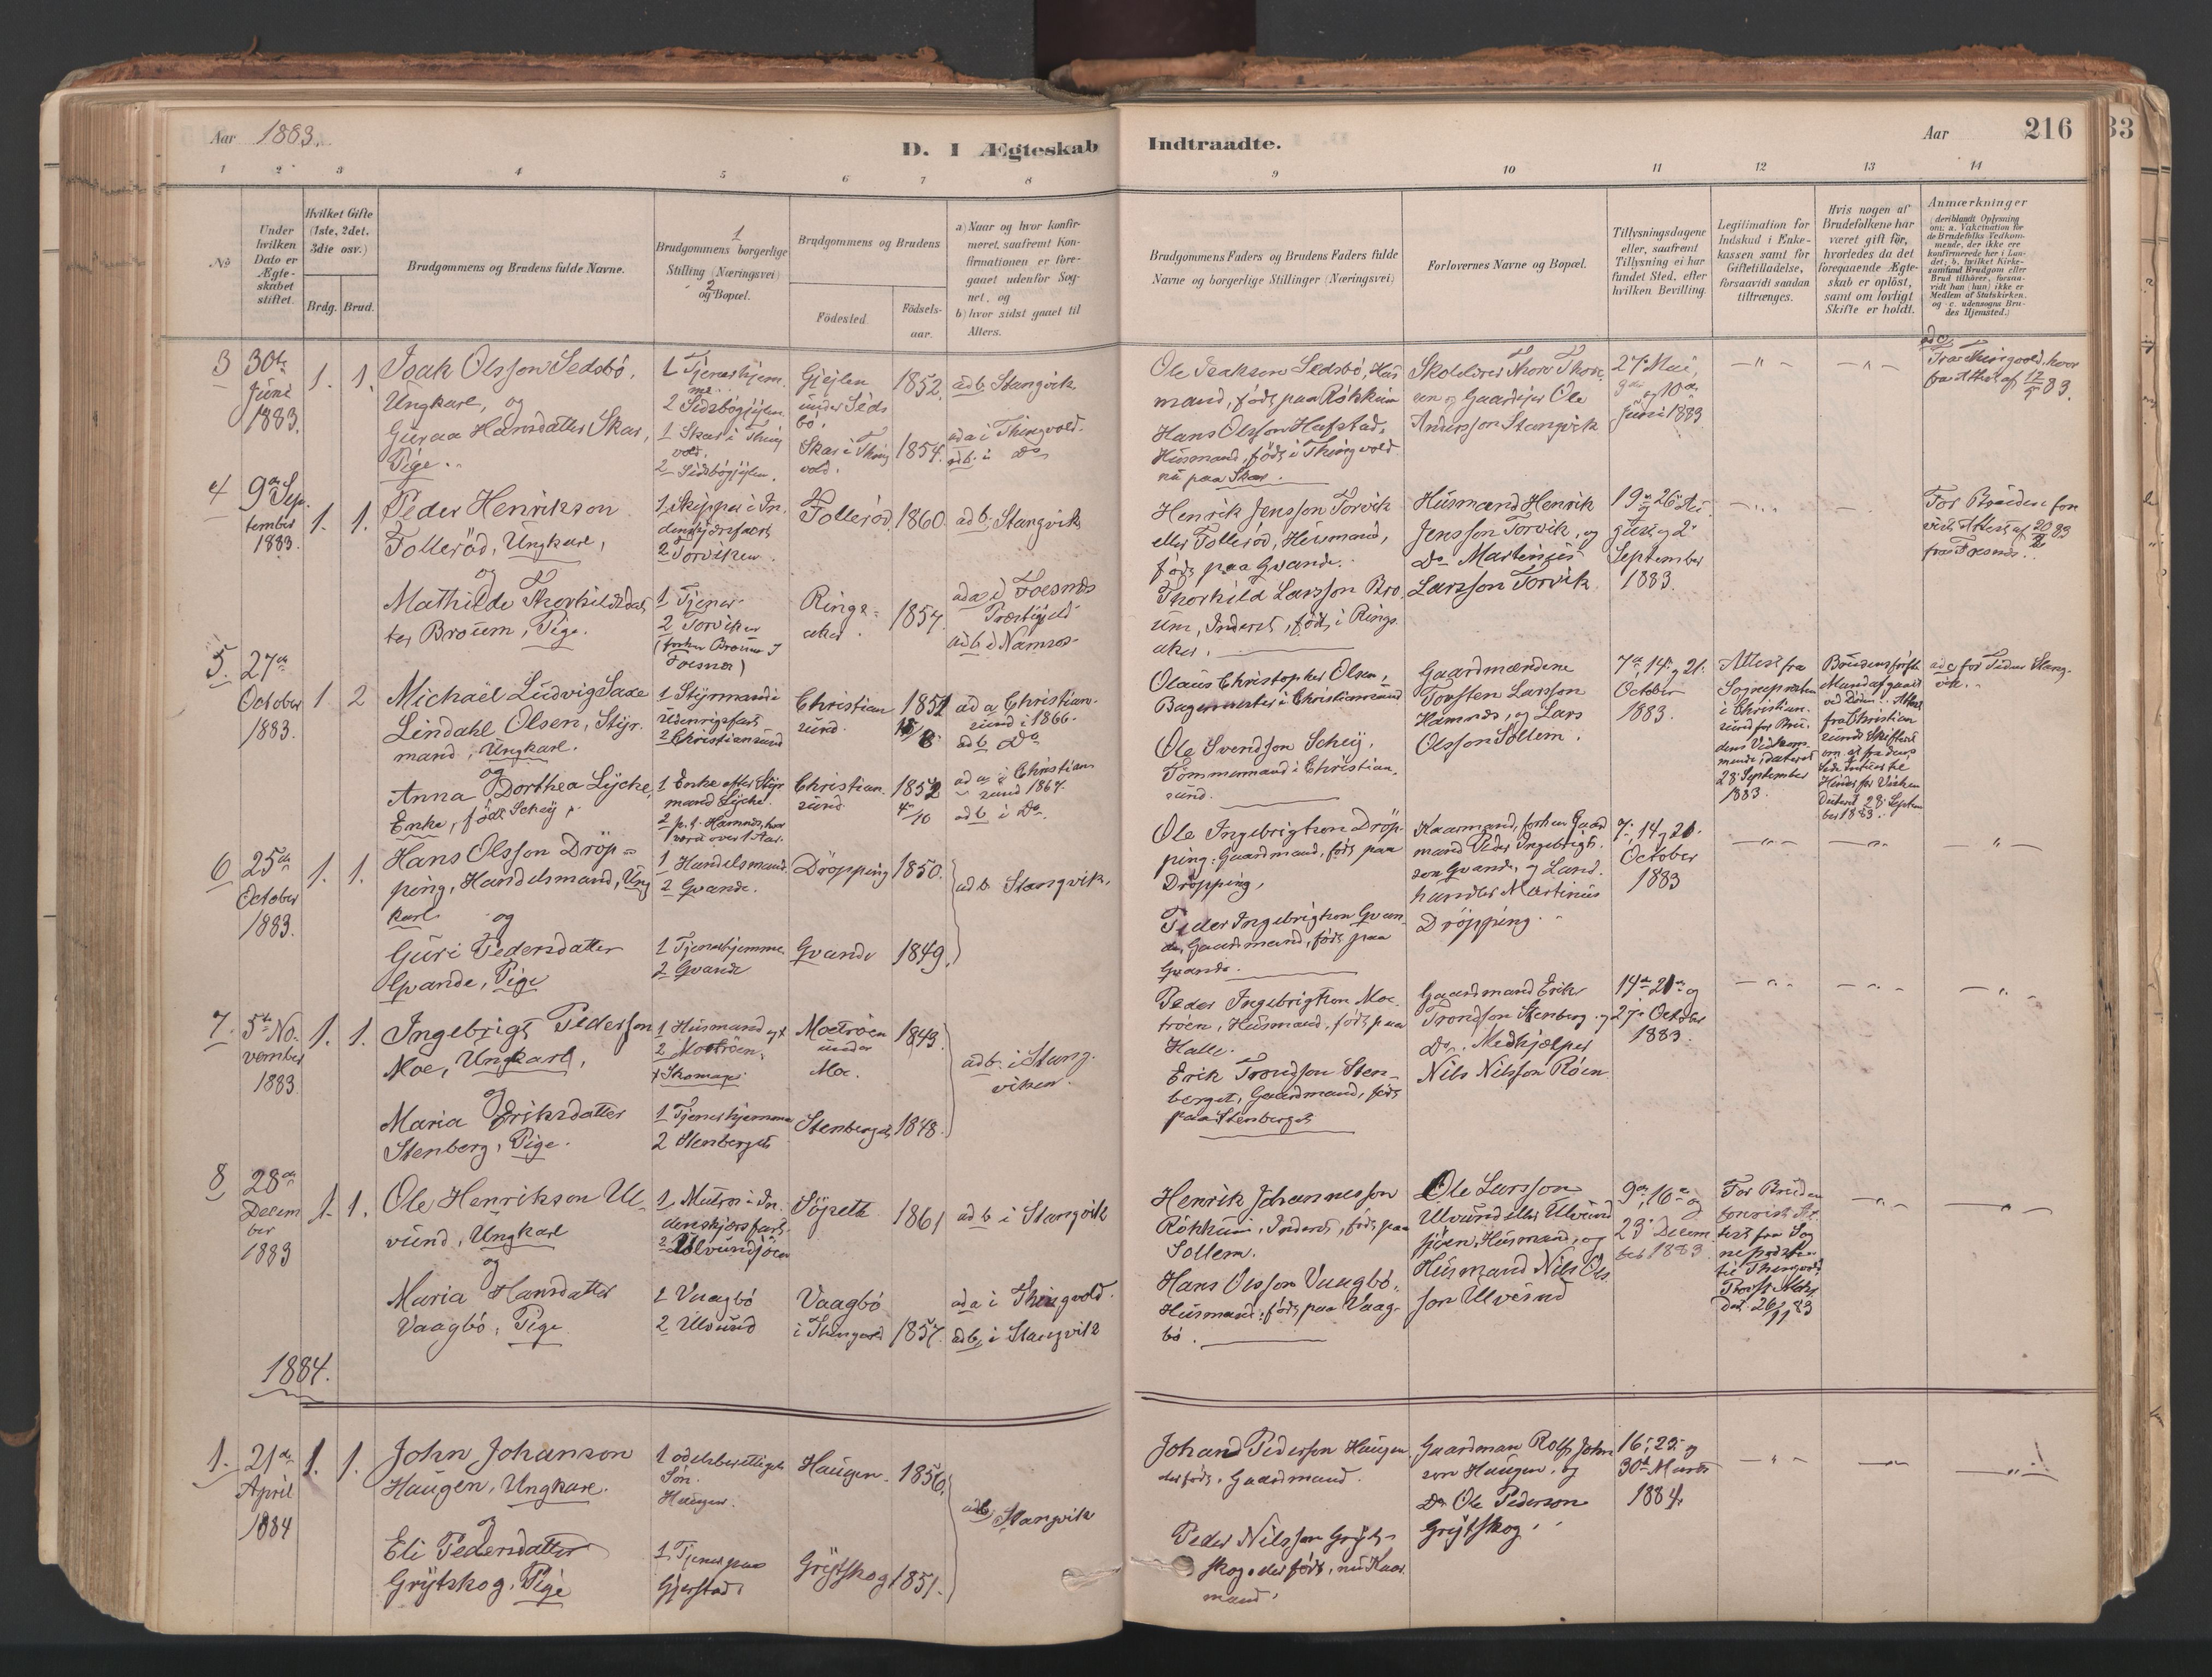 Aar 1883.
D. I Ægteskab
Indtraadte.
Aar
216
33
1 2 3 4 5 6 7 8
9 10 11 12 13 14
No
Under
hvilken
Dato er
Ægte-
skabet
stiftet.
Hvilket Gifte
(1ste, 2det.
3die osv.)
Brdg. Brud.
Brudgommens og Brudens fulde Navne.
1
Brudgommens borgerlige
Stilling (Næringsvei)
2
og Bopæl.
Brudgommens og Brudens
Fødested
Fødsels-
aar.
a) Naar og hvor konfir-
meret, saafremt Kon-
firmationen er fore-
gaaet udenfor Sog-
net, og
b) hvor sidst gaaet til
Alters.
Brudgommens Faders og Brudens Faders fulde
Navne og borgerlige Stillinger (Næringsvei)
Forlovernes Navne og Bopæl.
Tillysningsdagene
eller, saafremt
Tillysning ei har
fundet Sted, efter
hvilken Bevilling
Legitimation for
Indskud i Enke-
kassen samt for
Giftetilladelse,
forsaavidt saadan
tiltrænges.
Hvis nogen af
Brudefolkene har
været gift før,
hvorledes da det
foregaaende Ægte-
skab er opløst,
samt om lovligt
Skifte er holdt.
Anmærkninger
(deriblandt Oplysning
om: a. Vakcination for
de Brudefolks Vedkom-
mende, der ikke ere
konfirmerede her i Lan-
det; b. hvilket Kirke-
samfund Brudgom eller
Brud tilhører, forsaa-
vidt han (hun) ikke er
Medlem af Statskirken.
og c. udensogns Bru-
des Hjemsted.)
3
30te
Juni
1883.
1. 1.
Isak Olsson Sedsbö,
Ungkarl, og
Guraa Hansdatter Skar,
Pige.
1 Tjener hjem-
me
2 Sedsbögjejlen.
1 Skar i Thing
vold.
2 Sedsbögjejlen.
Gjejlen
under Seds
bö.
Skar i Thing
vold.
1852.
1854.
ad b. Stangvik
ad a i Thingvold.
ad b. i do
Ole Isakson Sedsbö, Hus
mand, föds paa Rökkum
Hans Olsson Hafstad,
Husmand, föds i Thingvold
nu paa Skar.
Skolelærer Thore Thore
sen og Gaardejer Ole
Andersson Stangvik
27. Mai,
og 10de
Juni 1883
— " —
— " —
ad c.
Fra Thingvold, hvor
fra Attest af 12/5 83.
4
9de Sep-
tember
1883.
1. 1.
Peder Henrikson
Folleröd, Ungkarl,
og
Mathilde Thorkildsdat
ter Broum, Pige.
1. Skipper i In
denskjersfart
2. Torviken
1 Tjener.
2 Torviken
(forhen Broum i
Foesnes)
Follerød
Ringe-
aker.
1860.
1857.
ad b. Stangvik
ad a i Foesnes
Præstegjeld
ad b. i Namsos.
Henrik Jensson Torvik
eller Follerød, Husmand,
föds paa Gvande.
Thorkild Larsson Bro
um, Inderst, föds i Ringe
aker.
Husmand Henrik
Jensson Torvik, og
Do Martinus
Larsson Torvik.
19de 26de Au-
gust og 2.
September
1883.
For Bruden fore
vist Attest af 20/8 83
fra Foesnes.
5.
27de
October
1883.
1 2
Michael Ludvig Saxe
Lindahl Olsen, Styr-
mand, Ungkarl.
og
Anna Dorthea Lycke,
Enke, födt Scheij.
1 Styrmand i
Udenrigsfart
2 Christiansund
1 Enke efter Styr
mand Lycke.
2 p.t. Hamnes, hvor
været over 1 Aar.
Christian
sund.
Christian
sund.
1851
15/8
1852
4/10
ad a. Christian-
sund i 1866.
ad b. Do
ad a i Christian
sund 1867.
ad b. i Do.
Olaus Christopher Olsen,
Bagermester i Christiansund
Ole Svendson Scheij,
Tömmermand i Christian-
sund.
Gaardmændene
Torsten Larsson
Hamnes, og Lars
Olsson Sollem.
7de, 14. og 21.
October
1883.
Attest fra
Sognepræsten
i Christian-
sund for Bru-
dens Vedkom-
mende, dateret
28 September
1883.
Brudens först
Mand afgaaet
ved Döden. Attest
fra Christian
sunds Skifteret
om at fra dens
Side Intet til
Hinder for Vielsen
Dateret 28. Septem
ber 1883.
ad c for Bruden Stang-
vik.
6
25de
October
1883.
1. 1.
Hans Olsson Dröp-
ping, Handelsmand, Ung
karl
og
Guri Pedersdatter
Gvande, Pige
1 Handelsmand.
2 Gvande.
1 Tjener hjemme
2 Gvande
Dröpping
Gvande
1850.
1849.
ad b. Stangvik.
Ole Ingebrigtson Dröp-
ping, Gaardmand, föds paa
Dröpping,
Peder Ingebrigtson Gvan-
de, Gaardmand, föds paa
Gvande.
Kaarmand, forhen Gaard
mand Peder Ingebrigt-
son Gvande, og Land-
handler Martinus
Dröpping.
7., 14 og 21.
October
1883
— " —
— " —
— " —
7.
5te No-
vember
1883
1. 1.
Ingebrigt Pederson
Moe, Ungkarl,
og
Maria Eriksdatter
Stenberg, Pige.
1 Husmand og x
2 Moetröen.
x Skomager
1 Tjener hjemme
2 Stenberget
Moetröen
under
Moe.
Stenberget
1843.
1848.
ad b. i Stang-
viken.
Peder Ingebrigtson Moe-
troen, Husmand, föds paa
Halle.
Erik Trondson Sten-
berget, Gaardmand, föds
paa Stenberget
Gaardmand Erik
Trondson Stenberg og
Do. Medhjælper
Nils Nilsson Röen
14de 21de og
27. October
1883.
— " —
— " —
— " —
8
28de
Decem
ber
1883
1. 1.
Ole Henrikson Ul-
vund, Ungkarl
og
Maria Hansdatter
Vaagbö, Pige
1 Matros i In-
denskjersfart,
2 Ulvundsjöen
1 Vaagbö
2 Ulvund
Vaagbö
i Thingvold
1861
1857.
ad b i Stangvik
ad a i Thingvold.
ad b. i Stangvik
Henrik Johannesson
Rökkum, Inderst, föds paa
Sollem.
Hans Olsson Vaagbö,
Husmand, föds paa Vaag-
bö.
Ole Larsson
Ulvund eller Ulvund
sjöen, Husmand, og
Husmand Nils Ols
son Ulvund
9de, 16de og
23. Decem
ber 1883.
For Bruden
forevist At-
test fra Sog
nepræsten
til Thingvold,
dat. 26/11 83
— " —
— " —
1884.
1.
21de
April
1884
1. 1.
John Johanson
Haugen, Ungkarl.
og
Eli Pedersdatter
Grytskog, Pige
1 odelsberettiget
Sön.
Haugen.
1. Tjener paa
Gjerstad.
Haugen.
Grytskog
1856.
1851.
ad b. Stangvik
Johan Pederson Haugen,
der föds, Gaardmand.
Peder Nilsson Gryt-
skog, der föds, nu Kaar
mand.
Gaardman Rolf John
son Haugen, og
Do Ole Pederson
Grytskog.
16., 23. og
30te Marts
1884.
— " —
— " —
— " —